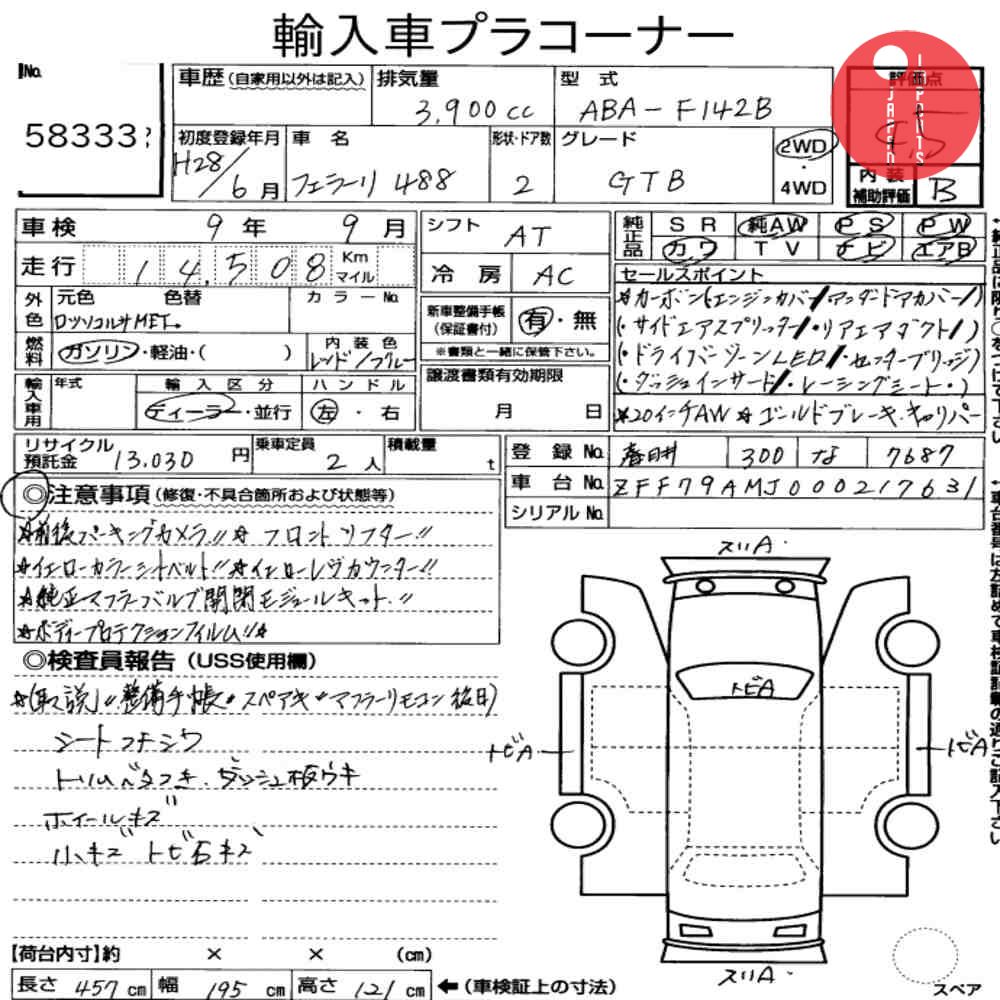 輸入車プラコーナー
No.
58333
車歴(自家用以外は記入)
排気量
3,900cc
型 式
ABA-F142B
評価点
4.5
JAPAN IMPORTS
初度登録年月
H28/6月
車 名
フェラーリ 488
形状・ドア数
2
グレード
GTB
2WD
・
4WD
内装
補助評価
B
車検 9年 9月
シフト AT
純正品
SR 純AW PS PW
カワ TV ナビ エアB
走行 14,508 Km マイル
冷房 AC
セールスポイント
外色
元色 色替
ロッソコルサMET.
カラーNo.
新車整備手帳
(保証書付)
有・無
※書類と一緒に保管下さい。
☆カーボン(エンジンカバー/アンダードアカバー/)
(・サイドエアスプリッター/・リアエアダクト/)
(・ドライバーゾーンLED/・センターブリッジ)
(・ダッシュインサート/・レーシングシート・)
☆20インチAW ☆ゴールドブレーキ・キャリパー
燃料
ガソリン・軽油・( )
内装色
レッド/ブルー
輸入車用
年式
輸入区分
ディーラー・並行
ハンドル
左・右
譲渡書類有効期限
月 日
リサイクル
預託金 13,030 円
乗車定員
2 人
積載量
t
登録No. 春日井 300 な 7687
車台No. ZFF79AMJ000217631
シリアルNo.
◎注意事項(修復・不具合箇所および状態等)
☆前後パーキングカメラ!!☆ フロントリフター!!
☆イエローカラーシートベルト!!☆イエローレヴカウンター!!
☆純正マフラーバルブ開閉モジュールキット!!
☆ボディープロテクションフィルム!!☆
◎検査員報告(USS使用欄)
☆(取説)〃整備手帳〃スペアキ〃マフラーリモコン後日)
シートコナシワ
トリムベタつき.ダッシュ板ウキ
ホイールキズ
小キズ トビ石キズ
スリA
トビA
トビA
トビA
スリA
スペア
【荷台内寸】約 × × (cm)
長さ 457 cm 幅 195 cm 高さ 121 cm ←(車検証上の寸法)